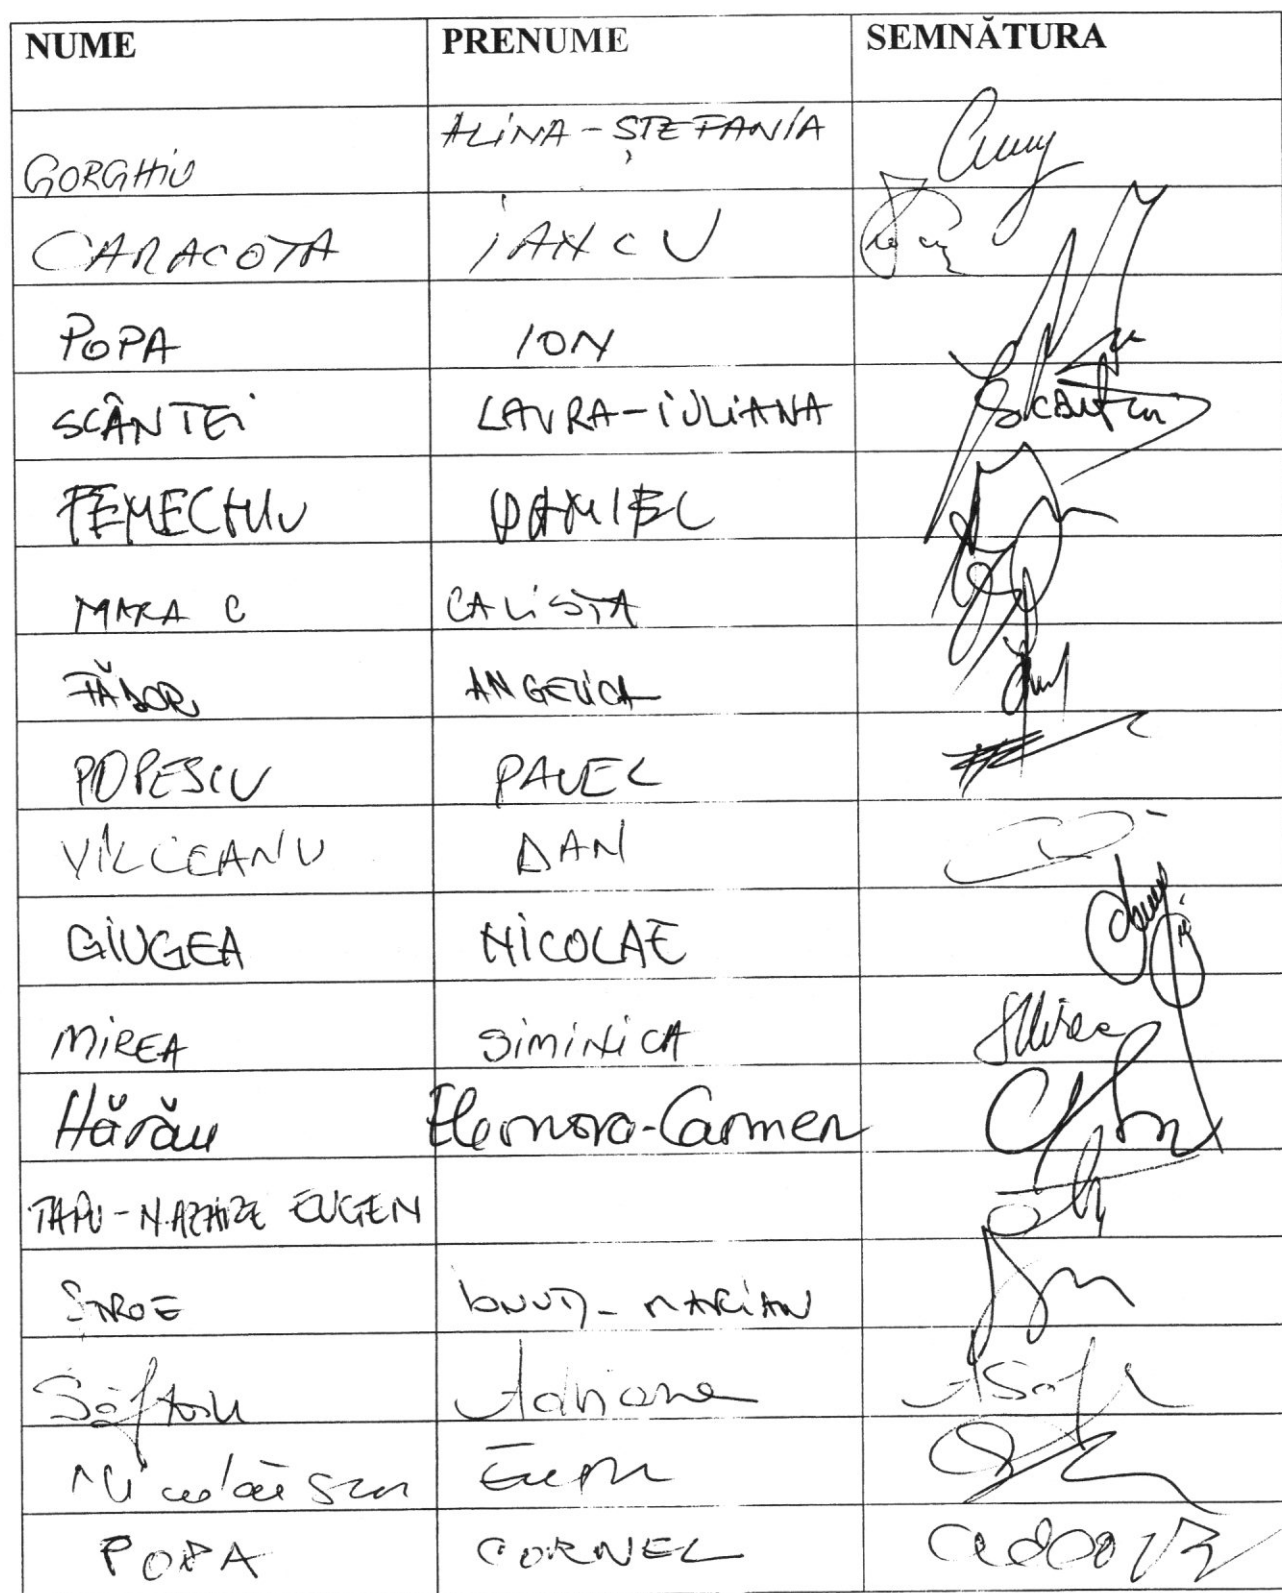 NUME PRENUME SEMNĂTURA
GORGHIU ALINA-ȘTEFANIA
CARACOTA IANCU
POPA ION
SCÂNTEI LAURA-IULIANA Scântei
FENECHIU DANIEL
MARA C CALISTA
FĂDOR ANGELICA
POPESCU PAVEL
VÎLCEANU DAN
GIUGEA NICOLAE
MIREA SIMINICA SMirea
Hărău Eleonora-Carmen
ȚAPU-NAZARE EUGEN
STROE IONUȚ-MARIAN
Săftoiu Adriana
Nicolăescu Eugen
POPA CORNEL